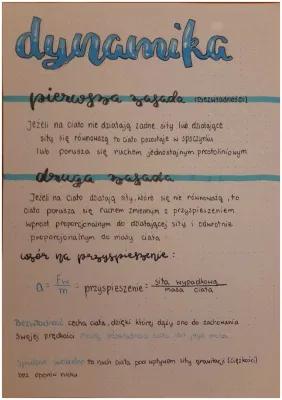 dynamika
pierwsza zasada (bezwładności)
Jeżeli na ciało nie działają żadne siły lub działające
siły się równoważą to ciało pozostaje w spoczynku
lub porusza się ruchem jednostajnym prostoliniowym
druga zasada
Jeżeli na ciało działają siły, które się nie równoważą, to
ciało porusza się ruchem zmiennym z przyspieszeniem
wprost proporcjonalnym do działającej siły i odwrotnie
proporcjonalnym do masy ciała
wzór na przyspieszenie:
a = Fw/m = przyspieszenie = siła wypadkowa/masa ciała
Bezwładność cecha ciała, dzięki której dąży ono do zachowania
swojej prędkości miarą bezwładności ciała jest jego masa
Spadanie swobodne to ruch ciała pod wpływem siły grawitacji (ciężkości)
bez oporów ruchu